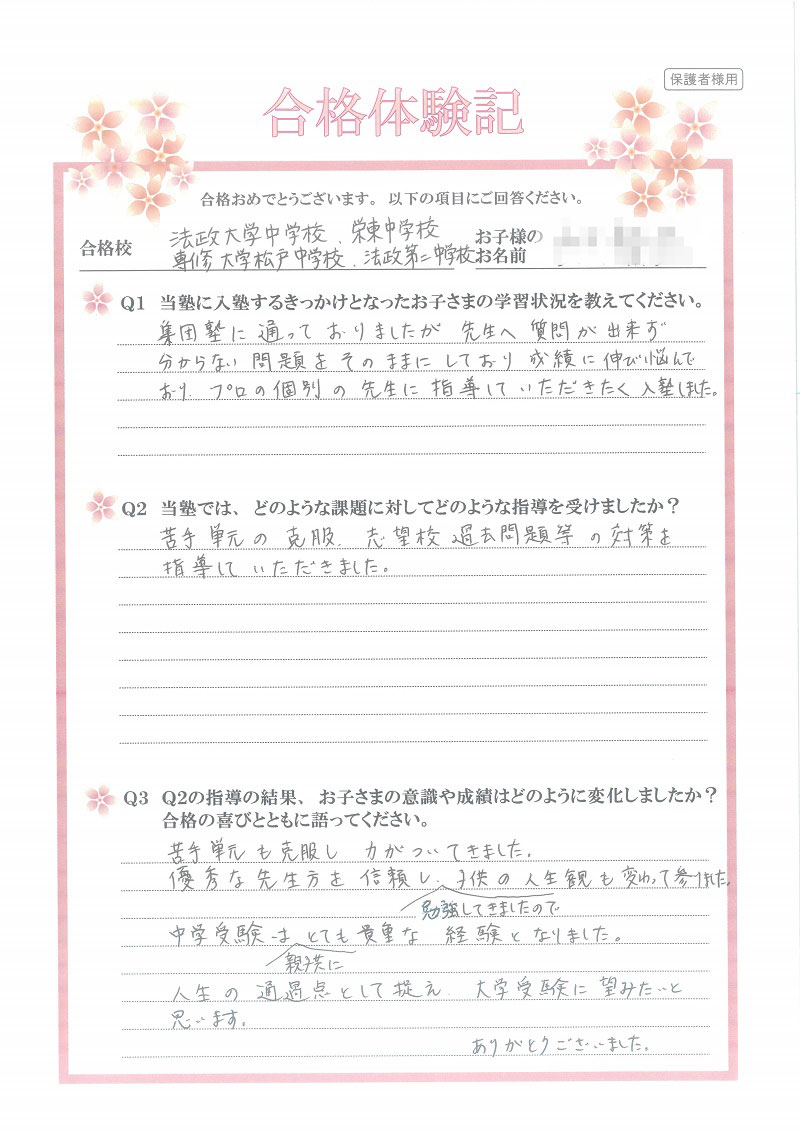 保護者様用
合格体験記
合格おめでとうございます。以下の項目にご回答ください。
合格校
法政大学中学校、栄東中学校
専修大学松戸中学校、法政第二中学校
お子様の
お名前
Q1 当塾に入塾するきっかけとなったお子さまの学習状況を教えてください。
集団塾に通っておりましたが先生へ質問が出来ず
分からない問題をそのままにしており成績に伸び悩んで
おり、プロの個別の先生に指導していただきたく入塾しました。
Q2 当塾では、どのような課題に対してどのような指導を受けましたか？
苦手単元の克服、志望校過去問題等の対策を
指導していただきました。
Q3 Q2の指導の結果、お子さまの意識や成績はどのように変化しましたか？
合格の喜びとともに語ってください。
苦手単元も克服し力がついてきました。
優秀な先生方を信頼し、子供の人生観も変わって参りました。
勉強してきましたので
中学受験はとても貴重な経験となりました。
親子共に
人生の通過点として捉え、大学受験に望みたいと
思います。
ありがとうございました。